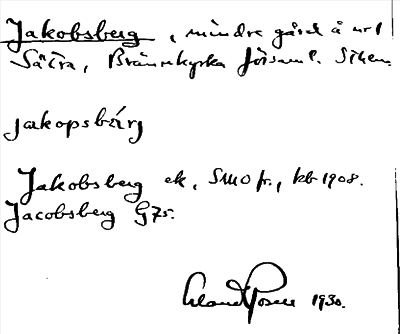 Jakobsberg, mindre gård å nr 1
Sätra, Brännkyrka församl. Sthlm.
jakopsbärj
Jakobsberg ek, SMO fr., kb 1908.
Jacobsberg G 75.
1930.